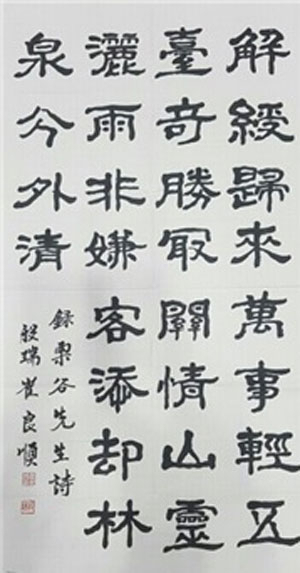 解綬歸來萬事輕五
臺奇勝冣關情山靈
灑雨非嫌客添却林
泉分外清
錄栗谷先生詩
瑞崔良順